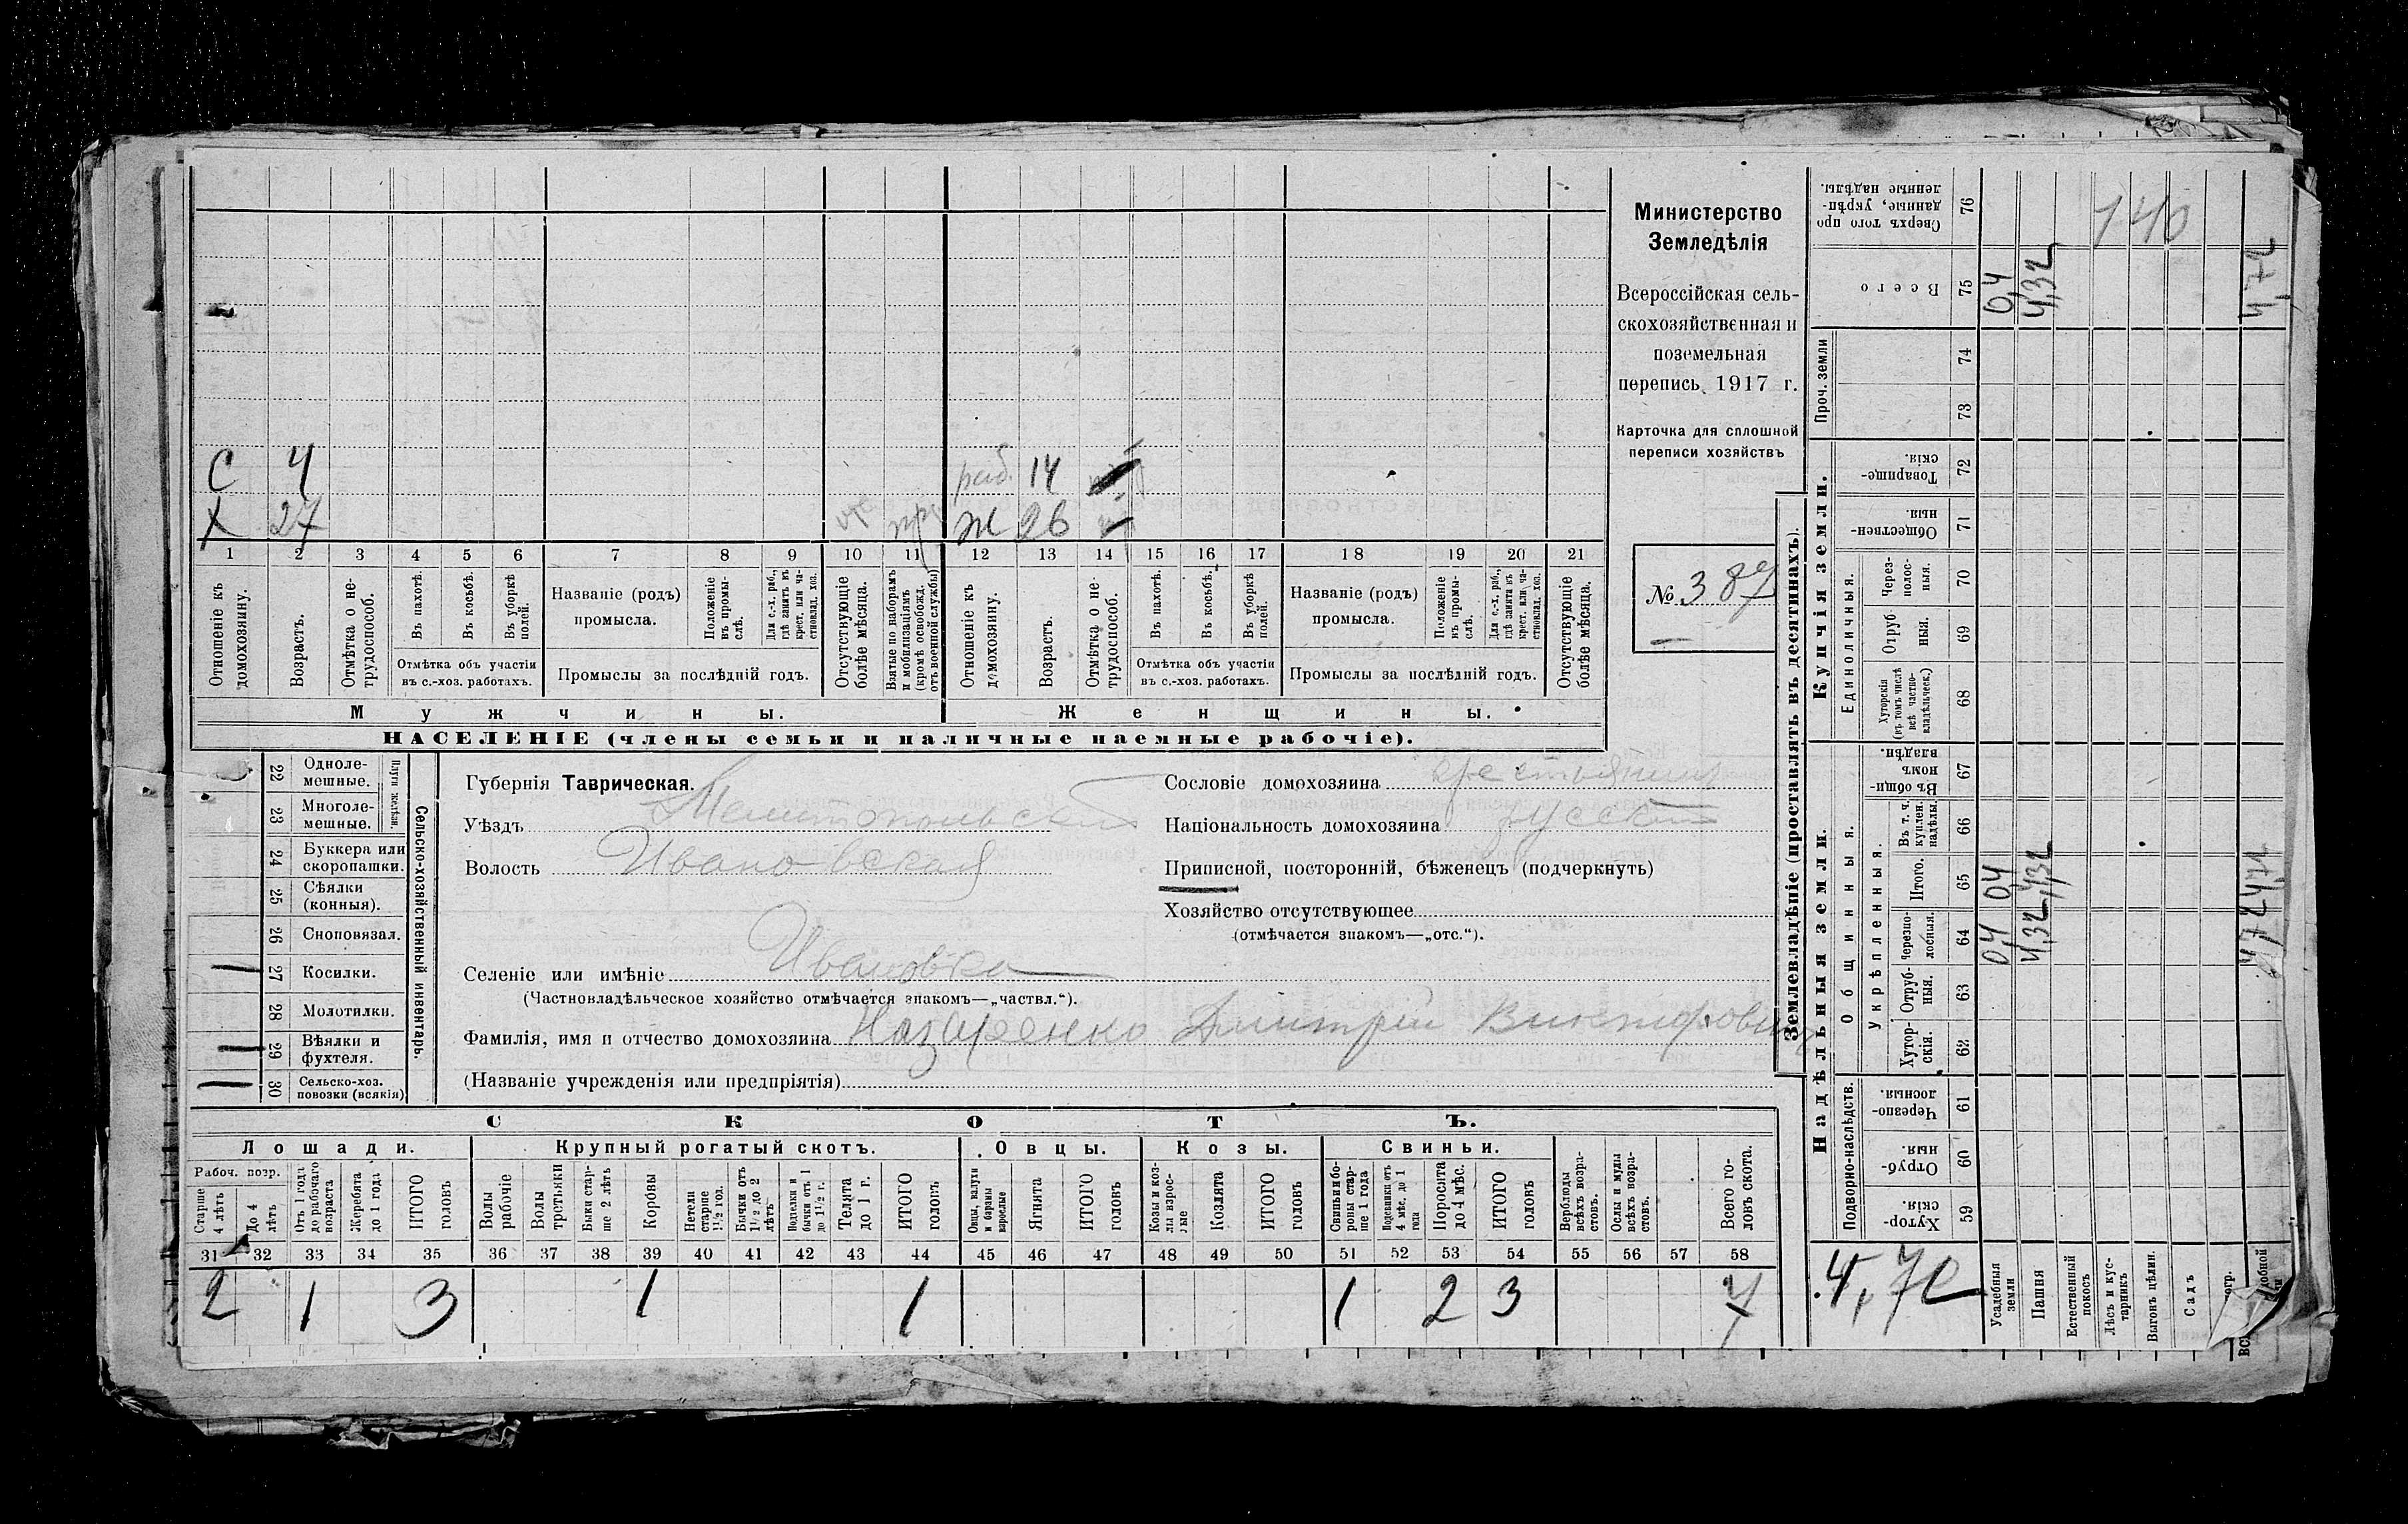 С 4 раб. 14
Х 27 Ж 26
1 2 3 4 5 6 7 8 9 10 11 12 13 14 15 16 17 18 19 20 21
Отношеніе къ домохозяину.
Возрастъ.
Отмѣтка о нетрудоспособ.
Въ пахотѣ.
Въ косьбѣ.
Въ уборкѣ полей.
Отмѣтка объ участіи
въ с.-хоз. работахъ.
Названіе (родъ)
промысла.
Положеніе въ промыслѣ.
Для с.-х. раб., гдѣ занятъ въ крест. или частновлад. хоз.
Промыслы за послѣдній годъ.
Отсутствующіе болѣе мѣсяца.
Взятые по наборамъ и мобилизаціямъ (кромѣ освобожд. отъ военной службы)
Отношеніе къ домохозяину.
Возрастъ.
Отмѣтка о нетрудоспособ.
Въ пахотѣ.
Въ косьбѣ.
Въ уборкѣ полей.
Отмѣтка объ участіи
въ с.-хоз. работахъ.
Названіе (родъ)
промысла.
Положеніе въ промыслѣ.
Для с.-х. раб., гдѣ занята въ крест. или частновлад. хоз.
Промыслы за послѣдній годъ.
Отсутствующіе болѣе мѣсяца.
Мужчины. Женщины.
НАСЕЛЕНІЕ (члены семьи и наличные наемные рабочіе).
Министерство
Земледѣлія
Всероссійская сель-
скохозяйственная и
поземельная
перепись 1917 г.
Карточка для сплошной
переписи хозяйствъ
№ 387
22 Однолемешные.
23 Многолемешные.
Плуги желѣзн.
24 Буккера или скоропашки.
25 Сѣялки (конныя).
26 Сноповязал.
27 Косилки.
28 Молотилки.
29 Вѣялки и фухтеля.
30 Сельско-хоз. повозки (всякія)
Сельско-хозяйственный инвентарь
Губернія Таврическая.
Уѣздъ Мелитопольскій
Волость Ивановская
Селеніе или имѣніе Ивановка
(Частновладѣльческое хозяйство отмѣчается знакомъ—„частвл.“).
Фамилія, имя и отчество домохозяина Назаренко Дмитрій Викторовичъ
(Названіе учрежденія или предпріятія)
Сословіе домохозяина крестьянинъ
Національность домохозяина русскій
Приписной, посторонній, бѣженецъ (подчеркнуть)
Хозяйство отсутствующее
(отмѣчается знакомъ—„отс.“).
СКОТЪ.
Лошади. Крупный рогатый скотъ. Овцы. Козы. Свиньи.
Рабоч. возр.
Старше 4 лѣтъ
До 4 лѣтъ
Отъ 1 года до рабочаго возраста
Жеребята до 1 года
ИТОГО головъ
Волы рабочіе
Волы третьяки
Быки старше 2 лѣтъ
Коровы
Нетели старше 1½ год.
Бычки отъ 1½ до 2 лѣтъ
Подтелки и бычки отъ 1 до 1½ г.
Телята до 1 г.
ИТОГО головъ
Овцы, валухи и бараны взрослые
Ягнята
ИТОГО головъ
Козы и козлы взрослые
Козлята
ИТОГО головъ
Свиньи и боровы старше 1 года
Подсвинки отъ 4 мѣс. до 1 года
Поросята до 4 мѣс.
ИТОГО головъ
Верблюды всѣхъ возрастовъ.
Ослы и мулы всѣхъ возрастовъ.
Всего головъ скота.
31 32 33 34 35 36 37 38 39 40 41 42 43 44 45 46 47 48 49 50 51 52 53 54 55 56 57 58
2 1 3 1 1 1 2 3 7
Землевладѣніе (проставлять въ десятинахъ).
Надѣльныя земли. Купчія земли. Проч. земли
Подворно-наслѣдств.
Общинныя.
Укрѣпленныя.
Единоличныя.
Хуторскія 59
Отрубныя 60
Черезполосныя. 61
Хуторскія. 62
Отрубныя. 63
Черезполосныя. 64
Итого. 65
Въ т. ч. куплен. надѣлы. 66
Въ общинномъ владѣн. 67
Хуторскія (въ томъ числѣ всѣ частновладѣльческ.) 68
Отрубныя. 69
Черезполосныя. 70
Общественныя. 71
Товарищескія. 72
73
74
Всего 75
Сверхъ того проданные, укрѣпленные надѣлы. 76
4,72
Усадебныя земли 0,4 0,4 0,4
Пашня 4,32 4,32 4,32
Естественный покосъ
Лѣсъ и кустарникъ
Выгонъ цѣлин.
Садъ
4,72 4,72 4,72
140